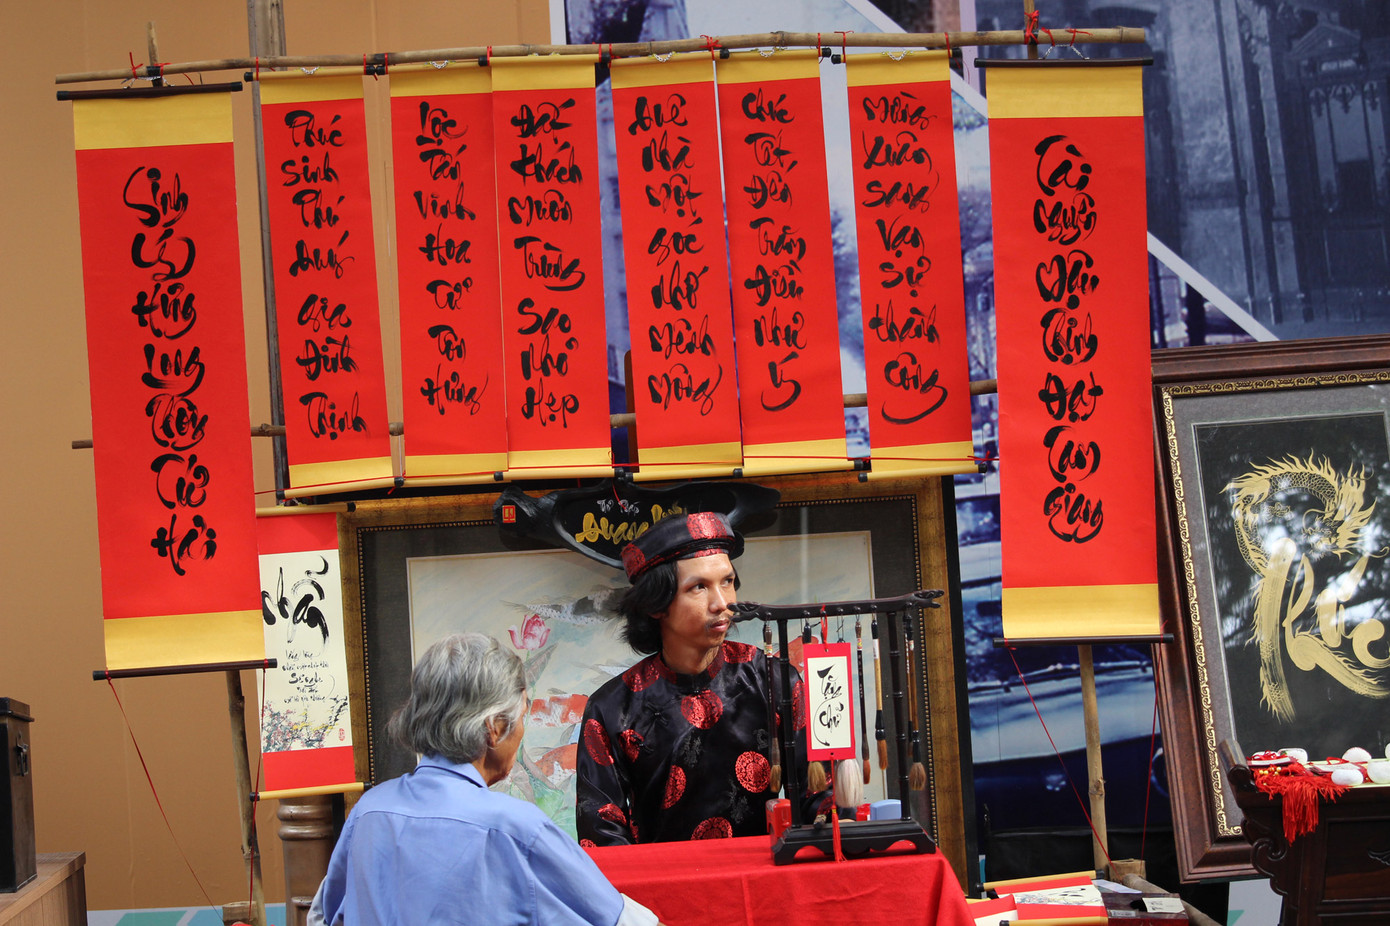 Sinh Ý Hưng Long Thông Tứ Hải
Phúc Sinh Phú Quý Gia Đình Thịnh
Lộc Tấn Vinh Hoa Tử Tôn Hưng
Đất Khách Muôn Trùng Sao Nhỏ Hẹp
Quê Nhà Một Góc Nhớ Mênh Mông
Chúc Tết Đến Trăm Điều Như Ý
Mừng Xuân Sang Vạn Sự Thành Công
Tài Nguyên Mậu Thịnh Đạt Tam Giang
Nhẫn
Tặng Chữ
Lộc